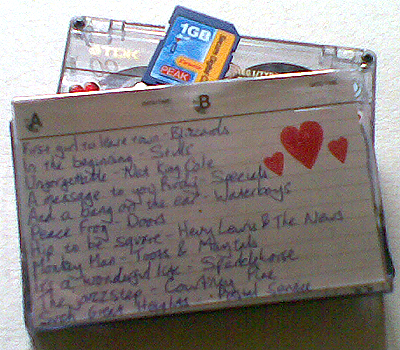 TDK
1GB
PEAK
A B
First girl to leave town - Blizzards
In the beginning - Stills
Unforgettable - Nat King Cole
A message to you Rudy - Specials
And a bang on the ear - Waterboys
Peace Frog - Doors
Hip to be square - Huey Lewis & The News
Monkey Man - Toots & Maytals
It's a wonderful life - Sparklehorse
The - Courtney Pine
Such Great Heights - Postal Service